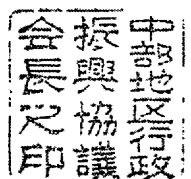 中部地区行政
振興協議
会長之印